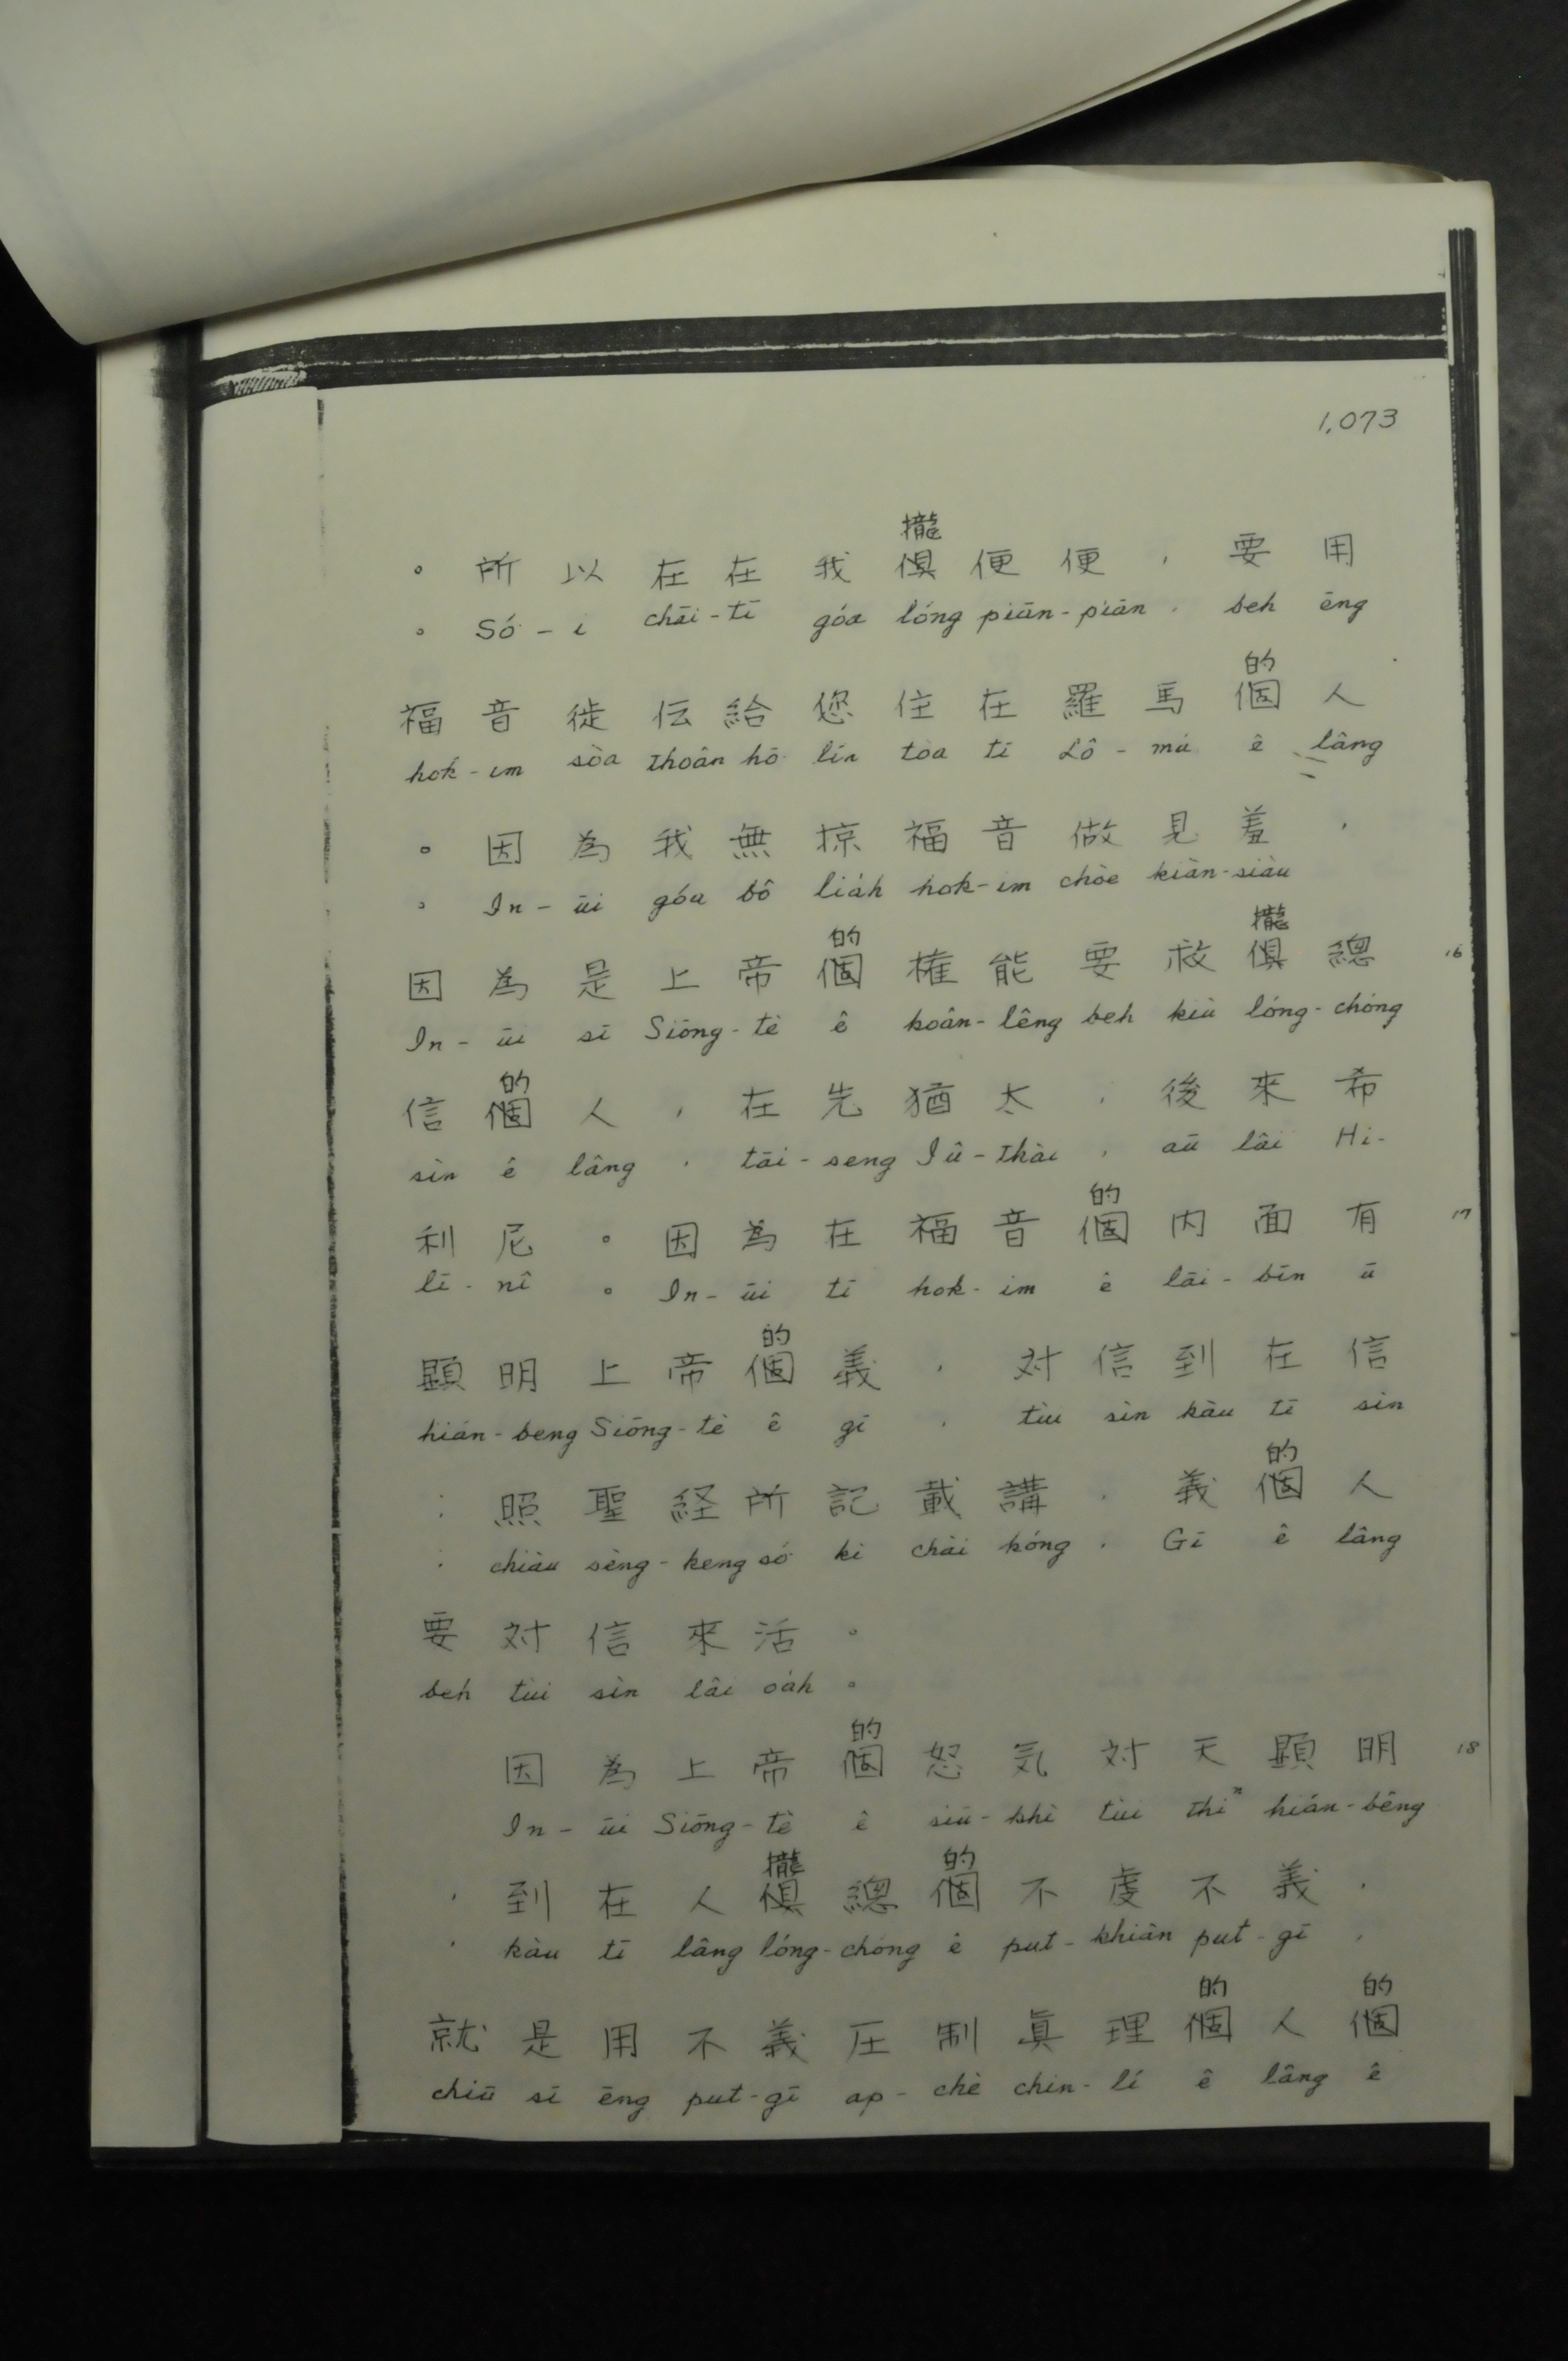 1,073
攏
。所以在在我俱便便，要用
。Só͘-í chāi-tī góa lóng piān-piān, beh ēng
的
福音徙伝給您住在羅馬個人
hok-im sòa thoân hō͘ lín tòa tī Lô-má ê lâng
。因為我無掠福音做見羞，
。In-ūi góa bô lia̍h hok-im chòe kiàn-siàu
的 攏
因為是上帝個権能要救俱總 16
In-ūi sī Siōng-tè ê koân-lêng beh kiù lóng-chóng
的
信個人，在先猶太，後來希
sìn ê lâng, tāi-seng Iû-thài, aū lâi Hi-
的
利尼。因為在福音個内面有 17
lī-nî 。In-ūi tī hok-im ê lāi-bīn ū
的
顕明上帝個義，対信到在信
hián-beng Siōng-tè ê gī, tùi sìn kàu tī sìn
的
：照聖経所記載講，義個人
: chiàu sèng-keng só͘ kì chài kóng, Gī ê lâng
要対信來活。
beh tùi sìn lâi oa̍h 。
的
因為上帝個怒気対天顕明 18
In-ūi Siōng-tè ê siū-khì tùi thiⁿ hián-bêng
攏 的
，到在人俱總個不虔不義，
, kàu tī lâng lóng-chóng ê put-khiân put-gī,
的 的
就是用不義圧制眞理個人個
chiū sī ēng put-gī ap-chè chin-lí ê lâng ê